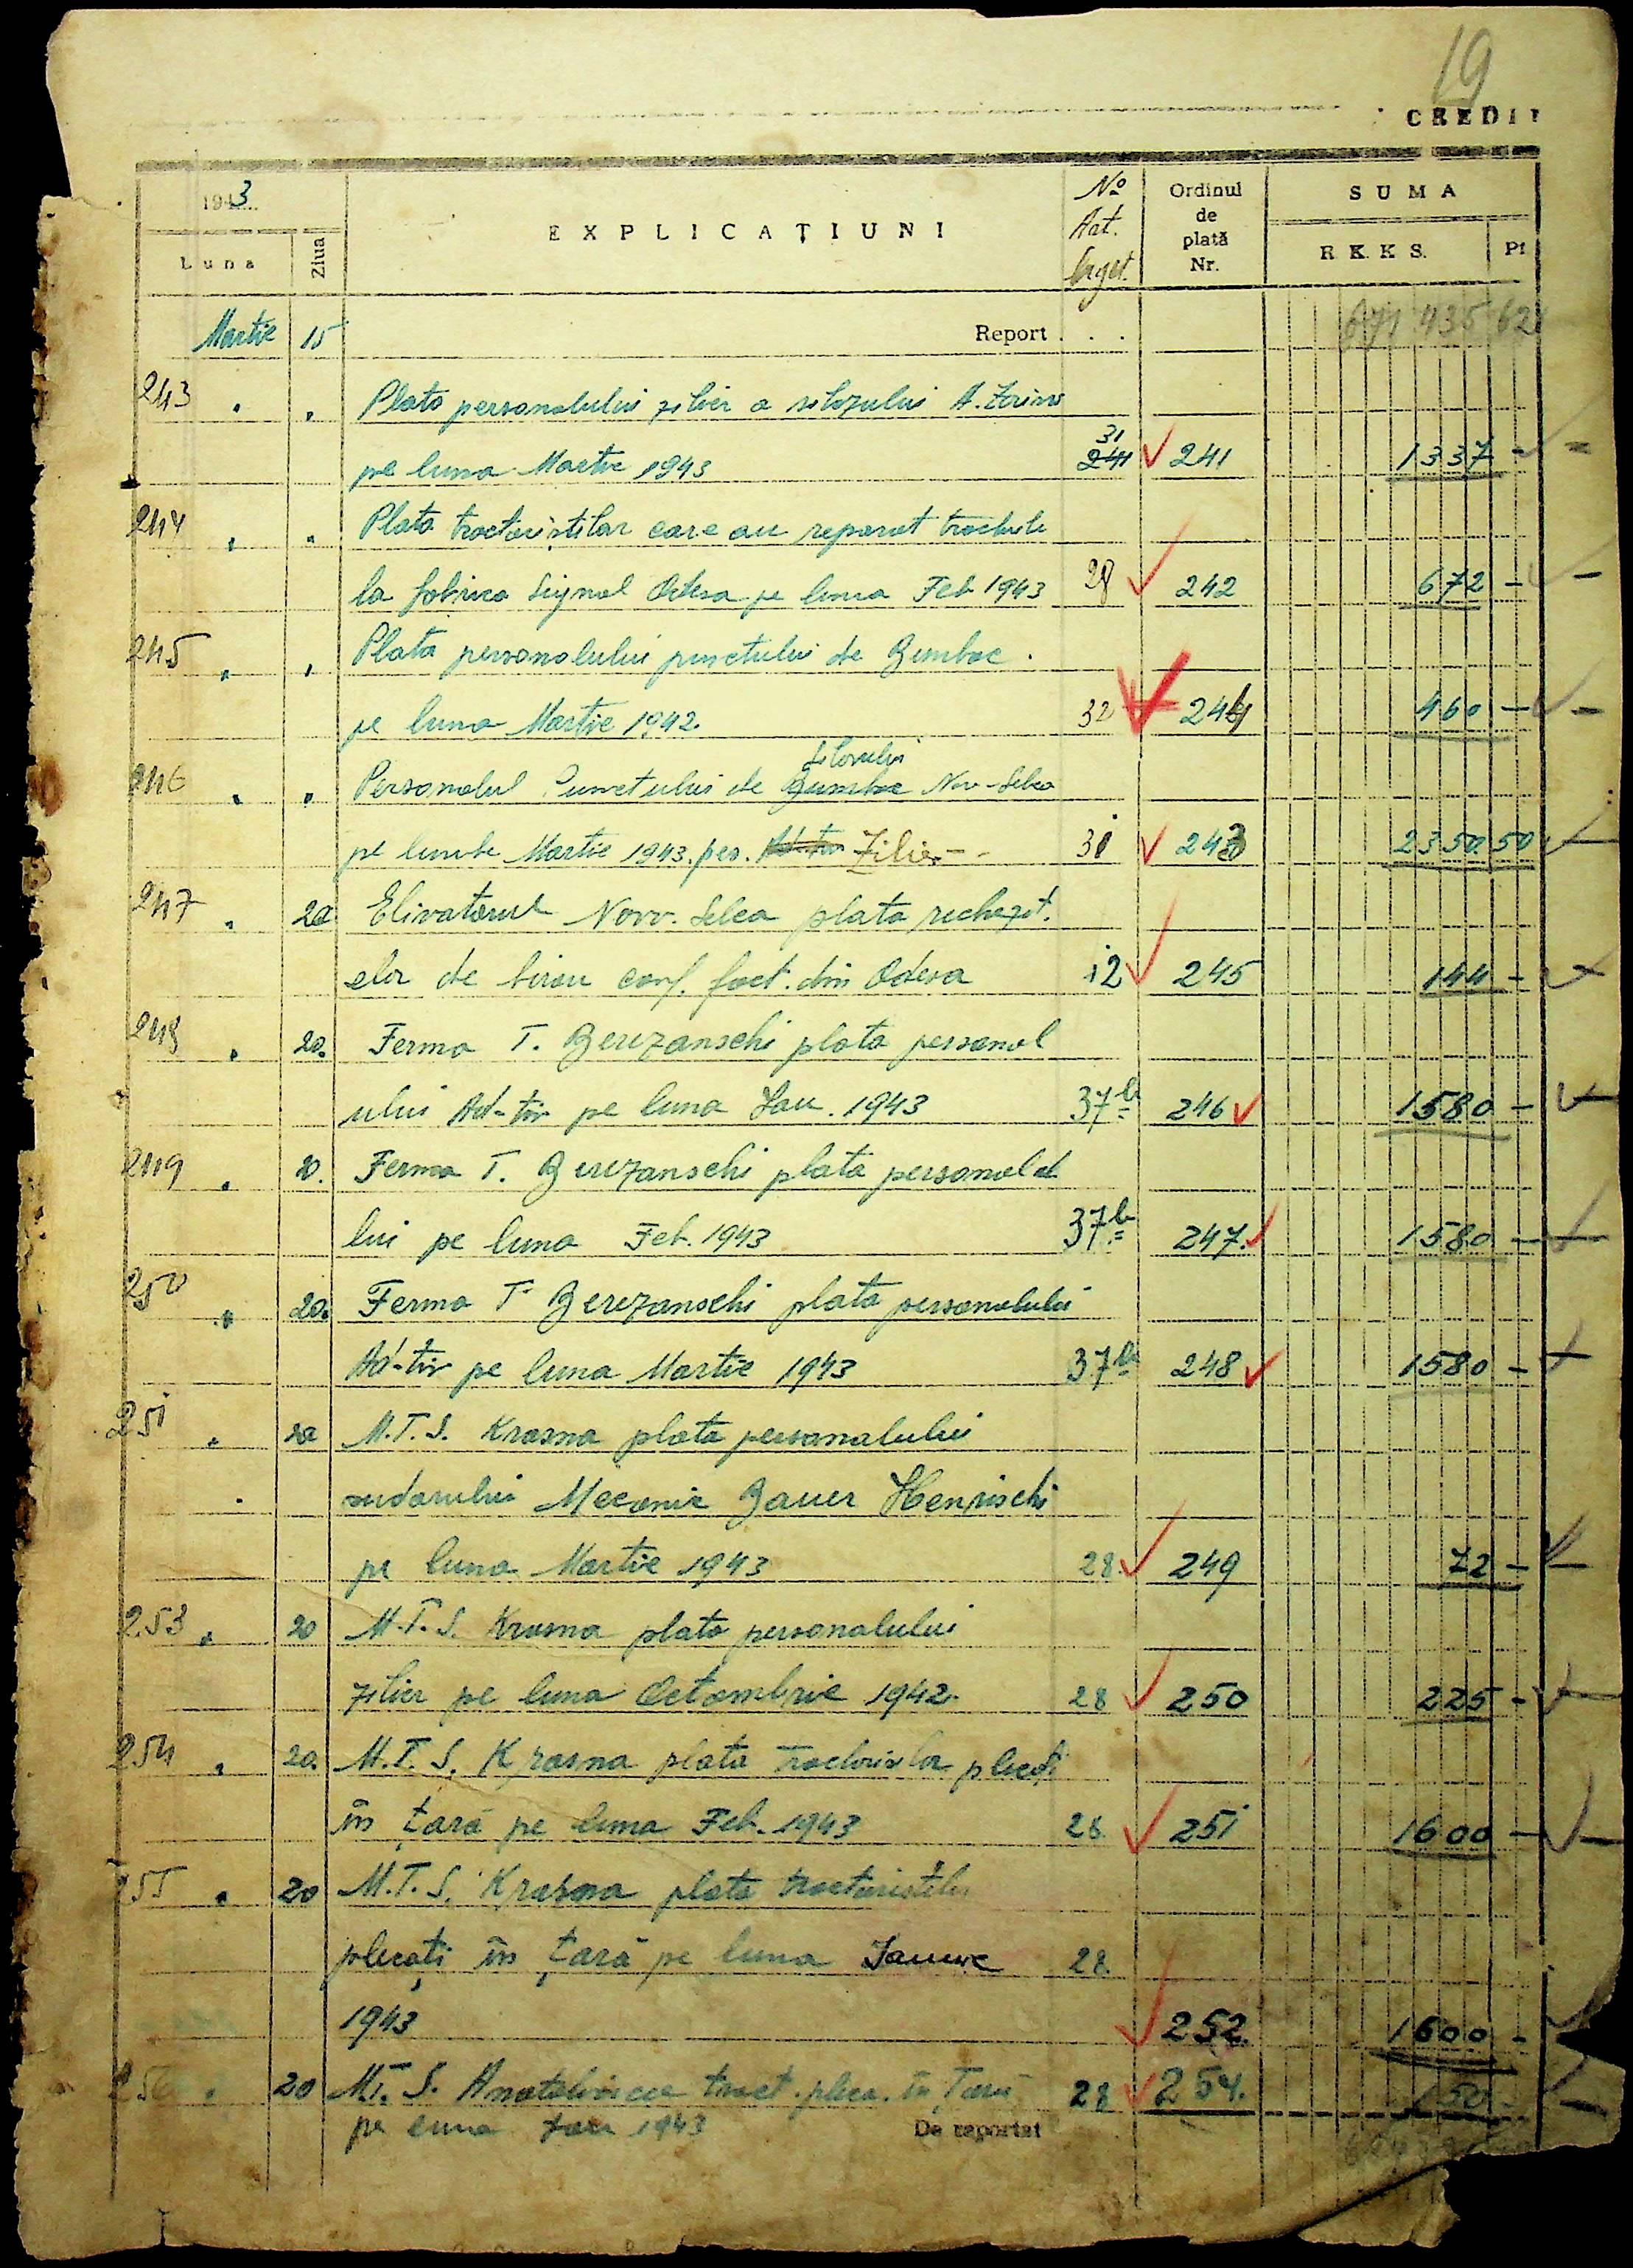 19
CREDIT
1943
Luna
Ziua
EXPLICAȚIUNI
No Art. Buget.
Ordinul de plată Nr.
SUMA
R.K.K.S. Pf
Martie 15 Report . . . 671 435 62
243 " " Plata personalului zilier a silozului A.
pe luna Martie 1943 31 241 241 1337 -
244 " " Plata tractoriștilor care au reparat
la fabrica Signal Odesa pe luna Feb 1943 28 242 672 -
245 " " Plata personalului punctului de Bumbac.
pe luna Martie 1942. 32 244 460 -
silozului
246 " " Personalul Punctului de Bumbac Nov-Selca
pe lunile Martie 1943. pers. Zilier - - 30 243 2350 50
247 " 20 Elivatorul Novv. Selca plata rechizit.
elor de birou conf. fact. din Odesa 12 245 144 -
248 " 20. Ferma T. Berezanschi plata personal
ului Ad-tiv pe luna Ian. 1943 37b 246 1580 -
249 " 20. Ferma T. Berezanschi plata personalul
lui pe luna Feb. 1943 37b 247. 1580 -
250 " 20. Ferma T. Berezanschi plata personalului
Ad-tiv pe luna Martie 1943 37b 248 1580 -
251 " 20 M.T.S. Krasna plata personalului
sudorului Mecanic Bauer Henrischi
pe luna Martie 1943 28 249 72 -
253 " 20 M.T.S. Krasna plata personalului
zilier pe luna Octombrie 1942. 28 250 225 -
254 " 20. M.T.S. Krasna plata plecați
în țară pe luna Feb. 1943 28 251 1600 -
255 " 20 M.T.S. Krasna plata tractoristilor
plecați în țară pe luna Ianuarie 28
1943 252. 1600 -
256 " 20 M.T.S. tract. pleca. în Țară 28 254. 150 -
pe luna Ian 1943 De raportat